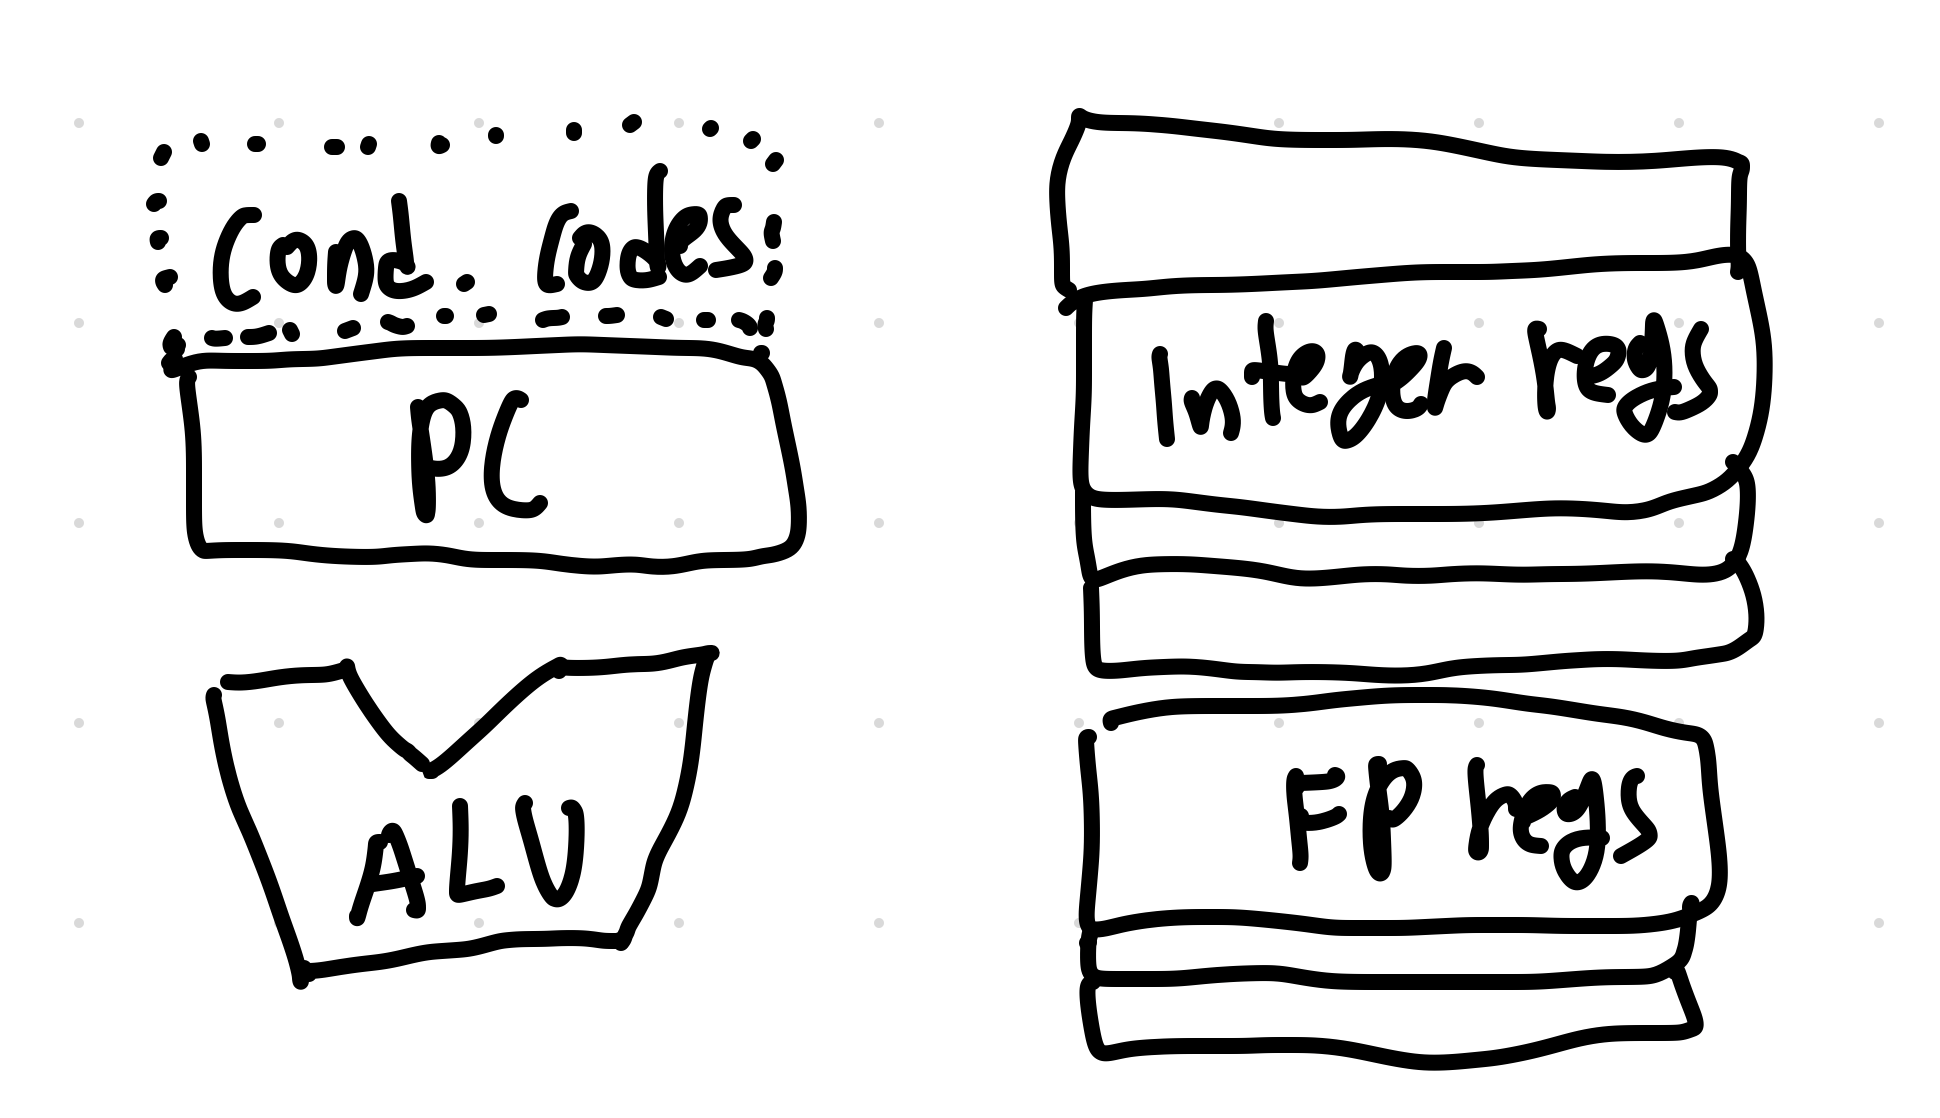 Cond. Codes
PC
ALU
Integer regs
FP regs